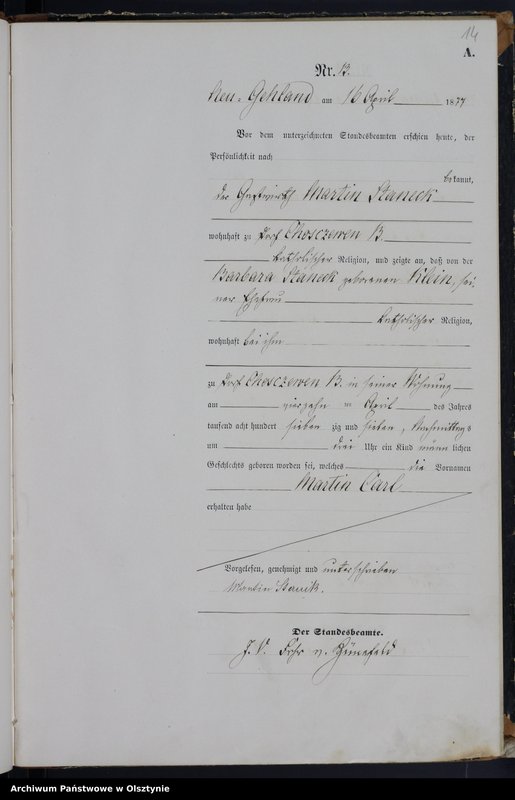 14
A.
Nr. 13.
Neu-Gehland am 16 April 1877
Vor dem unterzeichneten Standesbeamten erschien heute, der
Persönlichkeit nach
bekannt,
der Gastwirth Martin Staneck
wohnhaft zu Dorf Choszewen B.
katholischer Religion, und zeigte an, daß von der
Barbara Staneck geborenen Klein, sei-
ner Ehefrau
katholischer Religion,
wohnhaft bei ihm
zu Dorf Choszewen B. in seiner Wohnung
am vierzehn ten April des Jahres
tausend acht hundert sieben zig und sieben, Nachmittags
um drei Uhr ein Kind männ lichen
Geschlechts geboren worden sei, welches die Vornamen
Martin Carl
erhalten habe
Vorgelesen, genehmigt und unterschrieben
Martin Stanik.
Der Standesbeamte.
J. V. Frhr v.
Archiwum Państwowe w Olsztynie